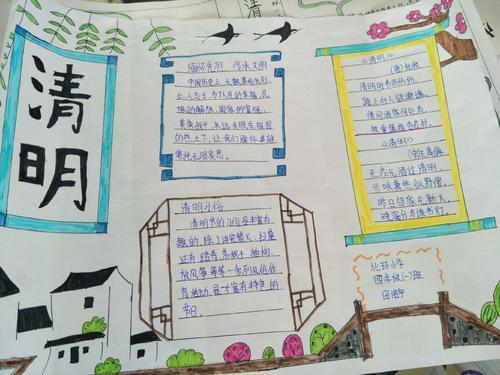 清明
缅怀先烈 传承文明
中国历史上,无数革命先烈,
仁人志士,为了人民的幸福,民
族的解放,国家的富强,
英勇战斗,永远长眠在祖国
的热土下,让我们缅怀英雄
寄托无限哀思。
清明习俗
清明节的习俗是丰富有
趣的,除了讲究禁火、扫墓
还有踏青、荡秋千、植树、
放风筝等等一系列风俗体
育活动,是一个富有特色的
节日。
《清明》
(唐)杜牧
清明时节雨纷纷,
路上行人欲断魂。
借问酒家何处有,
牧童遥指杏花村。
《清明》
(宋)王禹偁
无花无酒过清明,
兴味萧然似野僧。
昨日邻家乞新火,
晓窗分与读书灯。
北环小学
四年级(一)班
清